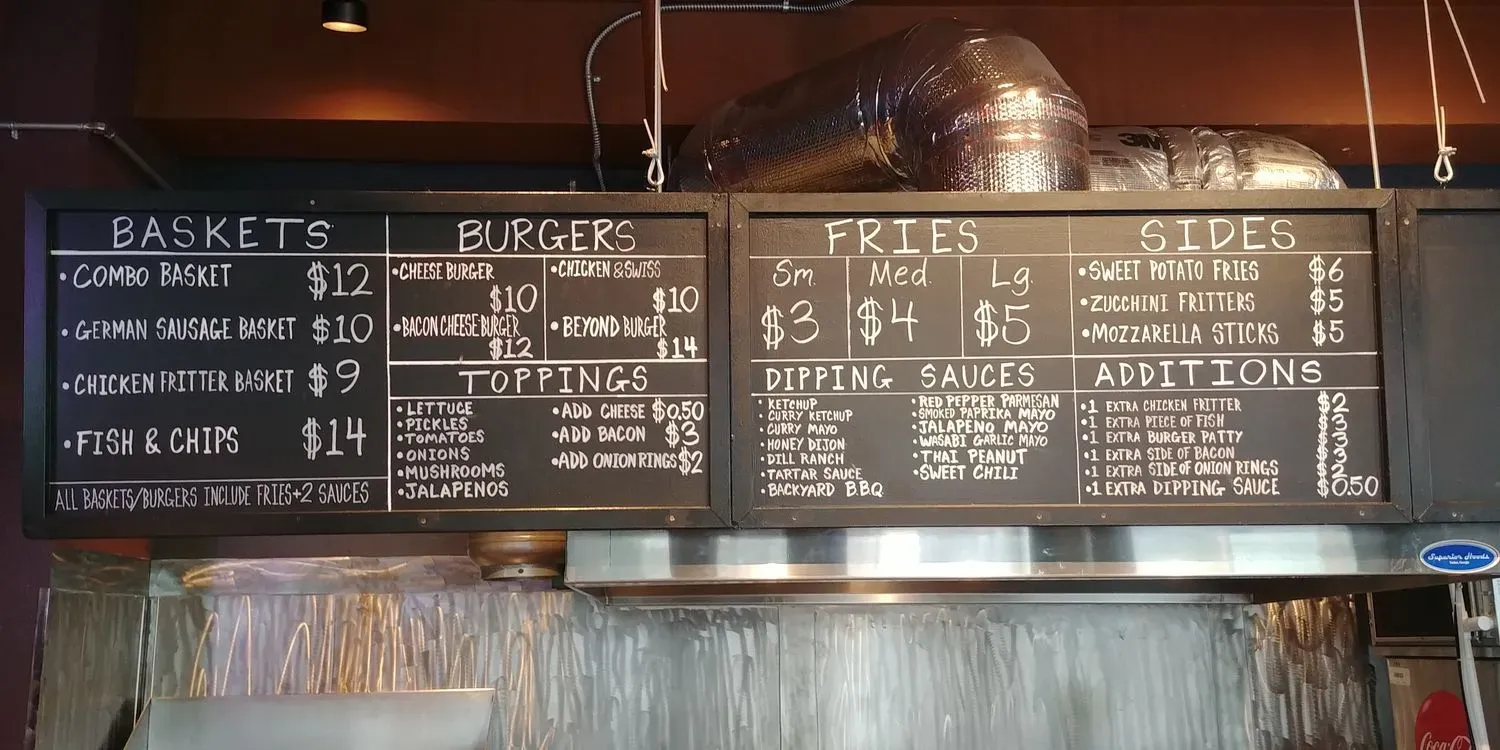 BASKETS
• COMBO BASKET $12
• GERMAN SAUSAGE BASKET $10
• CHICKEN FRITTER BASKET $9
• FISH & CHIPS $14
ALL BASKETS/BURGERS INCLUDE FRIES+2 SAUCES
BURGERS
• CHEESE BURGER
$10
• BACON CHEESE BURGER
$12
• CHICKEN & SWISS
$10
• BEYOND BURGER
$14
TOPPINGS
• LETTUCE
• PICKLES
• TOMATOES
• ONIONS
• MUSHROOMS
• JALAPENOS
• ADD CHEESE $0.50
• ADD BACON $3
• ADD ONION RINGS $2
FRIES
Sm. Med. Lg.
$3 $4 $5
DIPPING SAUCES
• KETCHUP
• CURRY KETCHUP
• CURRY MAYO
• HONEY DIJON
• DILL RANCH
• TARTAR SAUCE
• BACKYARD B.B.Q.
• RED PEPPER PARMESAN
• SMOKED PAPRIKA MAYO
• JALAPENO MAYO
• WASABI GARLIC MAYO
• THAI PEANUT
• SWEET CHILI
SIDES
• SWEET POTATO FRIES $6
• ZUCCHINI FRITTERS $5
• MOZZARELLA STICKS $5
ADDITIONS
• 1 EXTRA CHICKEN FRITTER $2
• 1 EXTRA PIECE OF FISH $3
• 1 EXTRA BURGER PATTY $3
• 1 EXTRA SIDE OF BACON $3
• 1 EXTRA SIDE OF ONION RINGS $2
• 1 EXTRA DIPPING SAUCE $0.50
3M
Superior Hoods
Coca-Cola